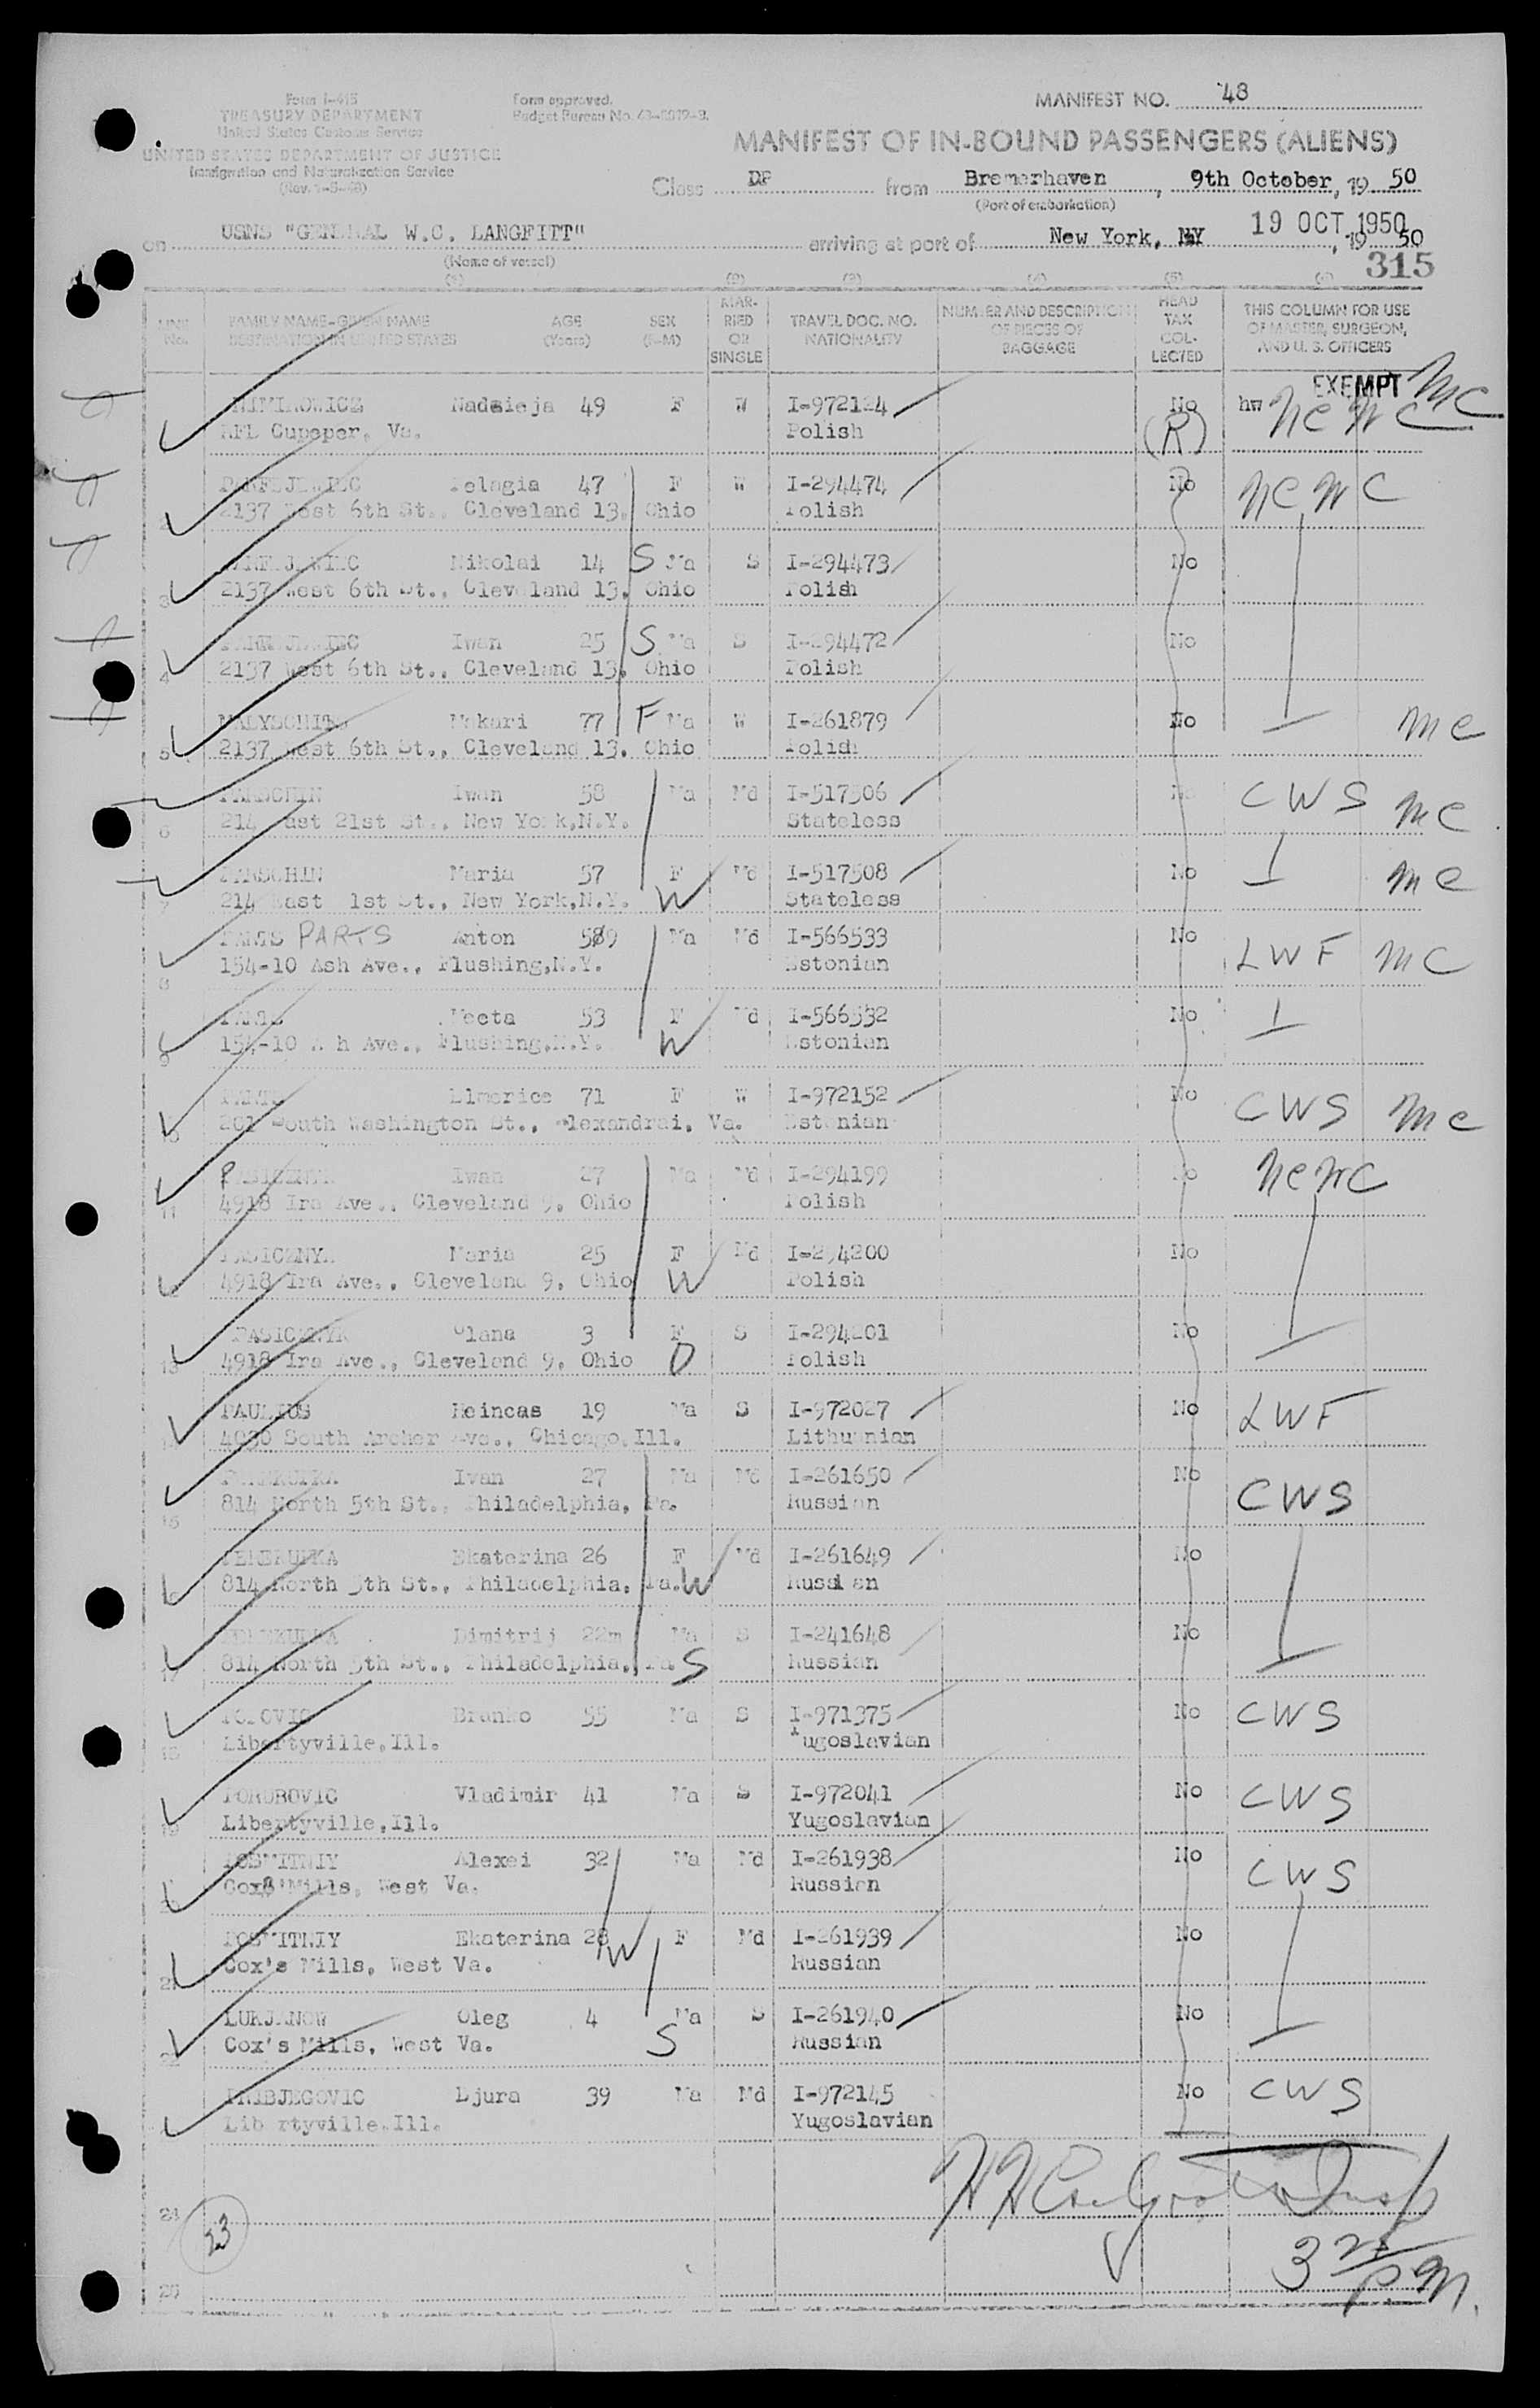 Form I-415
TREASURY DEPARTMENT
United States Customs Service
UNITED STATES DEPARTMENT OF JUSTICE
Immigration and Naturalization Service
Form approved.
Budget Bureau No.
MANIFEST NO. 48
MANIFEST OF IN-BOUND PASSENGERS (ALIENS)
Class DP from Bremerhaven, 9th October, 19 50
(Port of embarkation)
on USNS "GENERAL W.C. LANGFITT" arriving at port of New York, NY 19 OCT 1950, 19 50
(Name of vessel)
315
(1) (2) (3) (4) (5) (6)
LINE No. FAMILY NAME-GIVEN NAME DESTINATION IN UNITED STATES AGE (Years) SEX (F-M) MARRIED OR SINGLE TRAVEL DOC. NO. NATIONALITY NUMBER AND DESCRIPTION OF PIECES OF BAGGAGE HEAD TAX COLLECTED THIS COLUMN FOR USE OF MASTER, SURGEON, AND U. S. OFFICERS
EXEMPT
Nadzieja 49 F W I-972124 No hw NCWC MC
Cupeper, Va. Polish (R)
Pelagia 47 F W I-294474 No NCWC
2 2137 West 6th St., Cleveland 13, Ohio Polish
Nikolai 14 S Ma S I-294473 No
3 2137 West 6th St., Cleveland 13, Ohio Polish
Iwan 25 S Ma S I-294472 No
4 2137 West 6th St., Cleveland 13, Ohio Polish
Makari 77 F Ma W I-261879 No MC
5 2137 West 6th St., Cleveland 13, Ohio Polish
PARSCHIN Iwan 58 Ma Md I-517506 No CWS MC
6 214 East 21st St., New York,N.Y. Stateless
PARSCHIN Maria 57 F Md I-517508 No MC
7 214 East 1st St., New York,N.Y. W Stateless
PARTS Anton 589 Ma Md I-566533 No LWF MC
8 154-10 Ash Ave., Flushing,N.Y. Estonian
Meeta 53 F Md I-566532 No
9 154-10 A h Ave., Flushing,N.Y. W Estonian
71 F W I-972152 No CWS MC
10 201 South Washington St., Alexandrai, Va. Estonian
Iwan 27 Ma Md I-294199 No NCWC
11 4918 Ira Ave., Cleveland 9, Ohio Polish
PASICZNYK Maria 25 F Md I-294200 No
12 4918 Ira Ave., Cleveland 9, Ohio W Polish
PASICZNYK Olana 3 F S I-294201 No
13 4918 Ira Ave., Cleveland 9, Ohio D Polish
PAULIUS Heincas 19 Ma S I-972027 No LWF
4030 South Archer Ave., Chicago,Ill. Lithuanian
PEREKUPKA Ivan 27 Ma Md I-261650 No CWS
15 814 North 5th St., Philadelphia, Pa. Russian
PEREKUPKA Ekaterina 26 F Md I-261649 No
16 814 North 5th St., Philadelphia, Pa. W Russi an
PEREKUPKA Dimitrij 22m Ma S I-241648 No
17 814 North 5th St., Philadelphia, Pa. S Russian
Branko 55 Ma S I-971375 No CWS
18 Libertyville,Ill. Yugoslavian
Vladimir 41 Ma S I-972041 No CWS
19 Libertyville,Ill. Yugoslavian
POSMITNIY Alexei 32 Ma Md I-261938 No CWS
20 Cox's Mills, West Va. Russian
POSMITNIY Ekaterina 28 W F Md I-261939 No
21 Cox's Mills, West Va. Russian
LUKJANOW Oleg 4 Ma S I-261940 No
22 Cox's Mills, West Va. S Russian
PRIBJEGOVIC Djura 39 Ma Md I-972145 No CWS
Lib rtyville,Ill. Yugoslavian
24
23
25